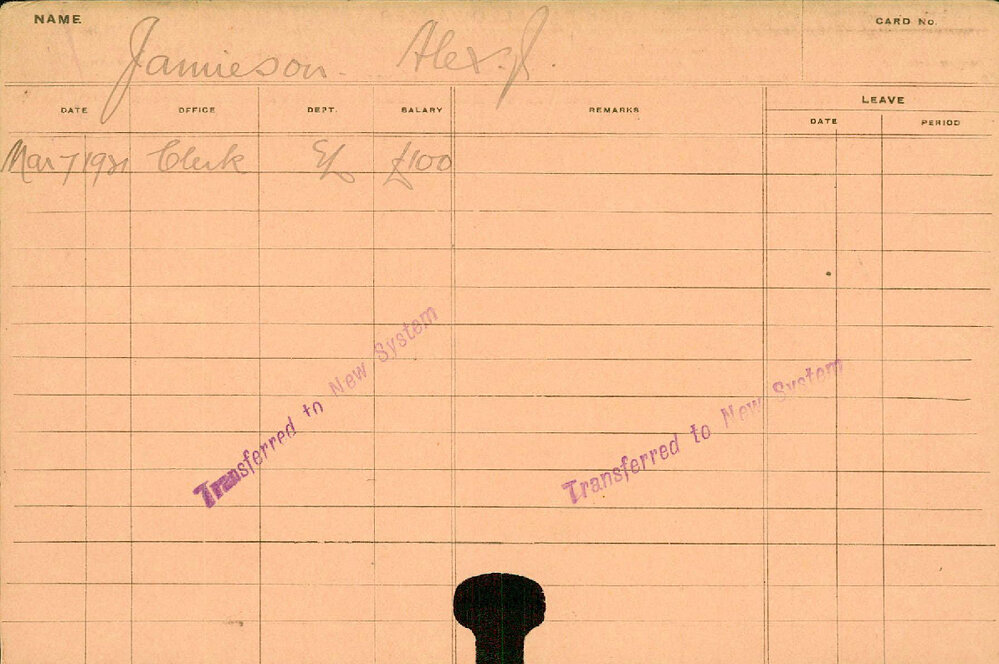 NAME
CARD NO.
Jamieson. Alex. J.
DATE OFFICE DEPT. SALARY REMARKS LEAVE
DATE PERIOD
Mar 7 1921 Clerk £100
Transferred to New System
Transferred to New System